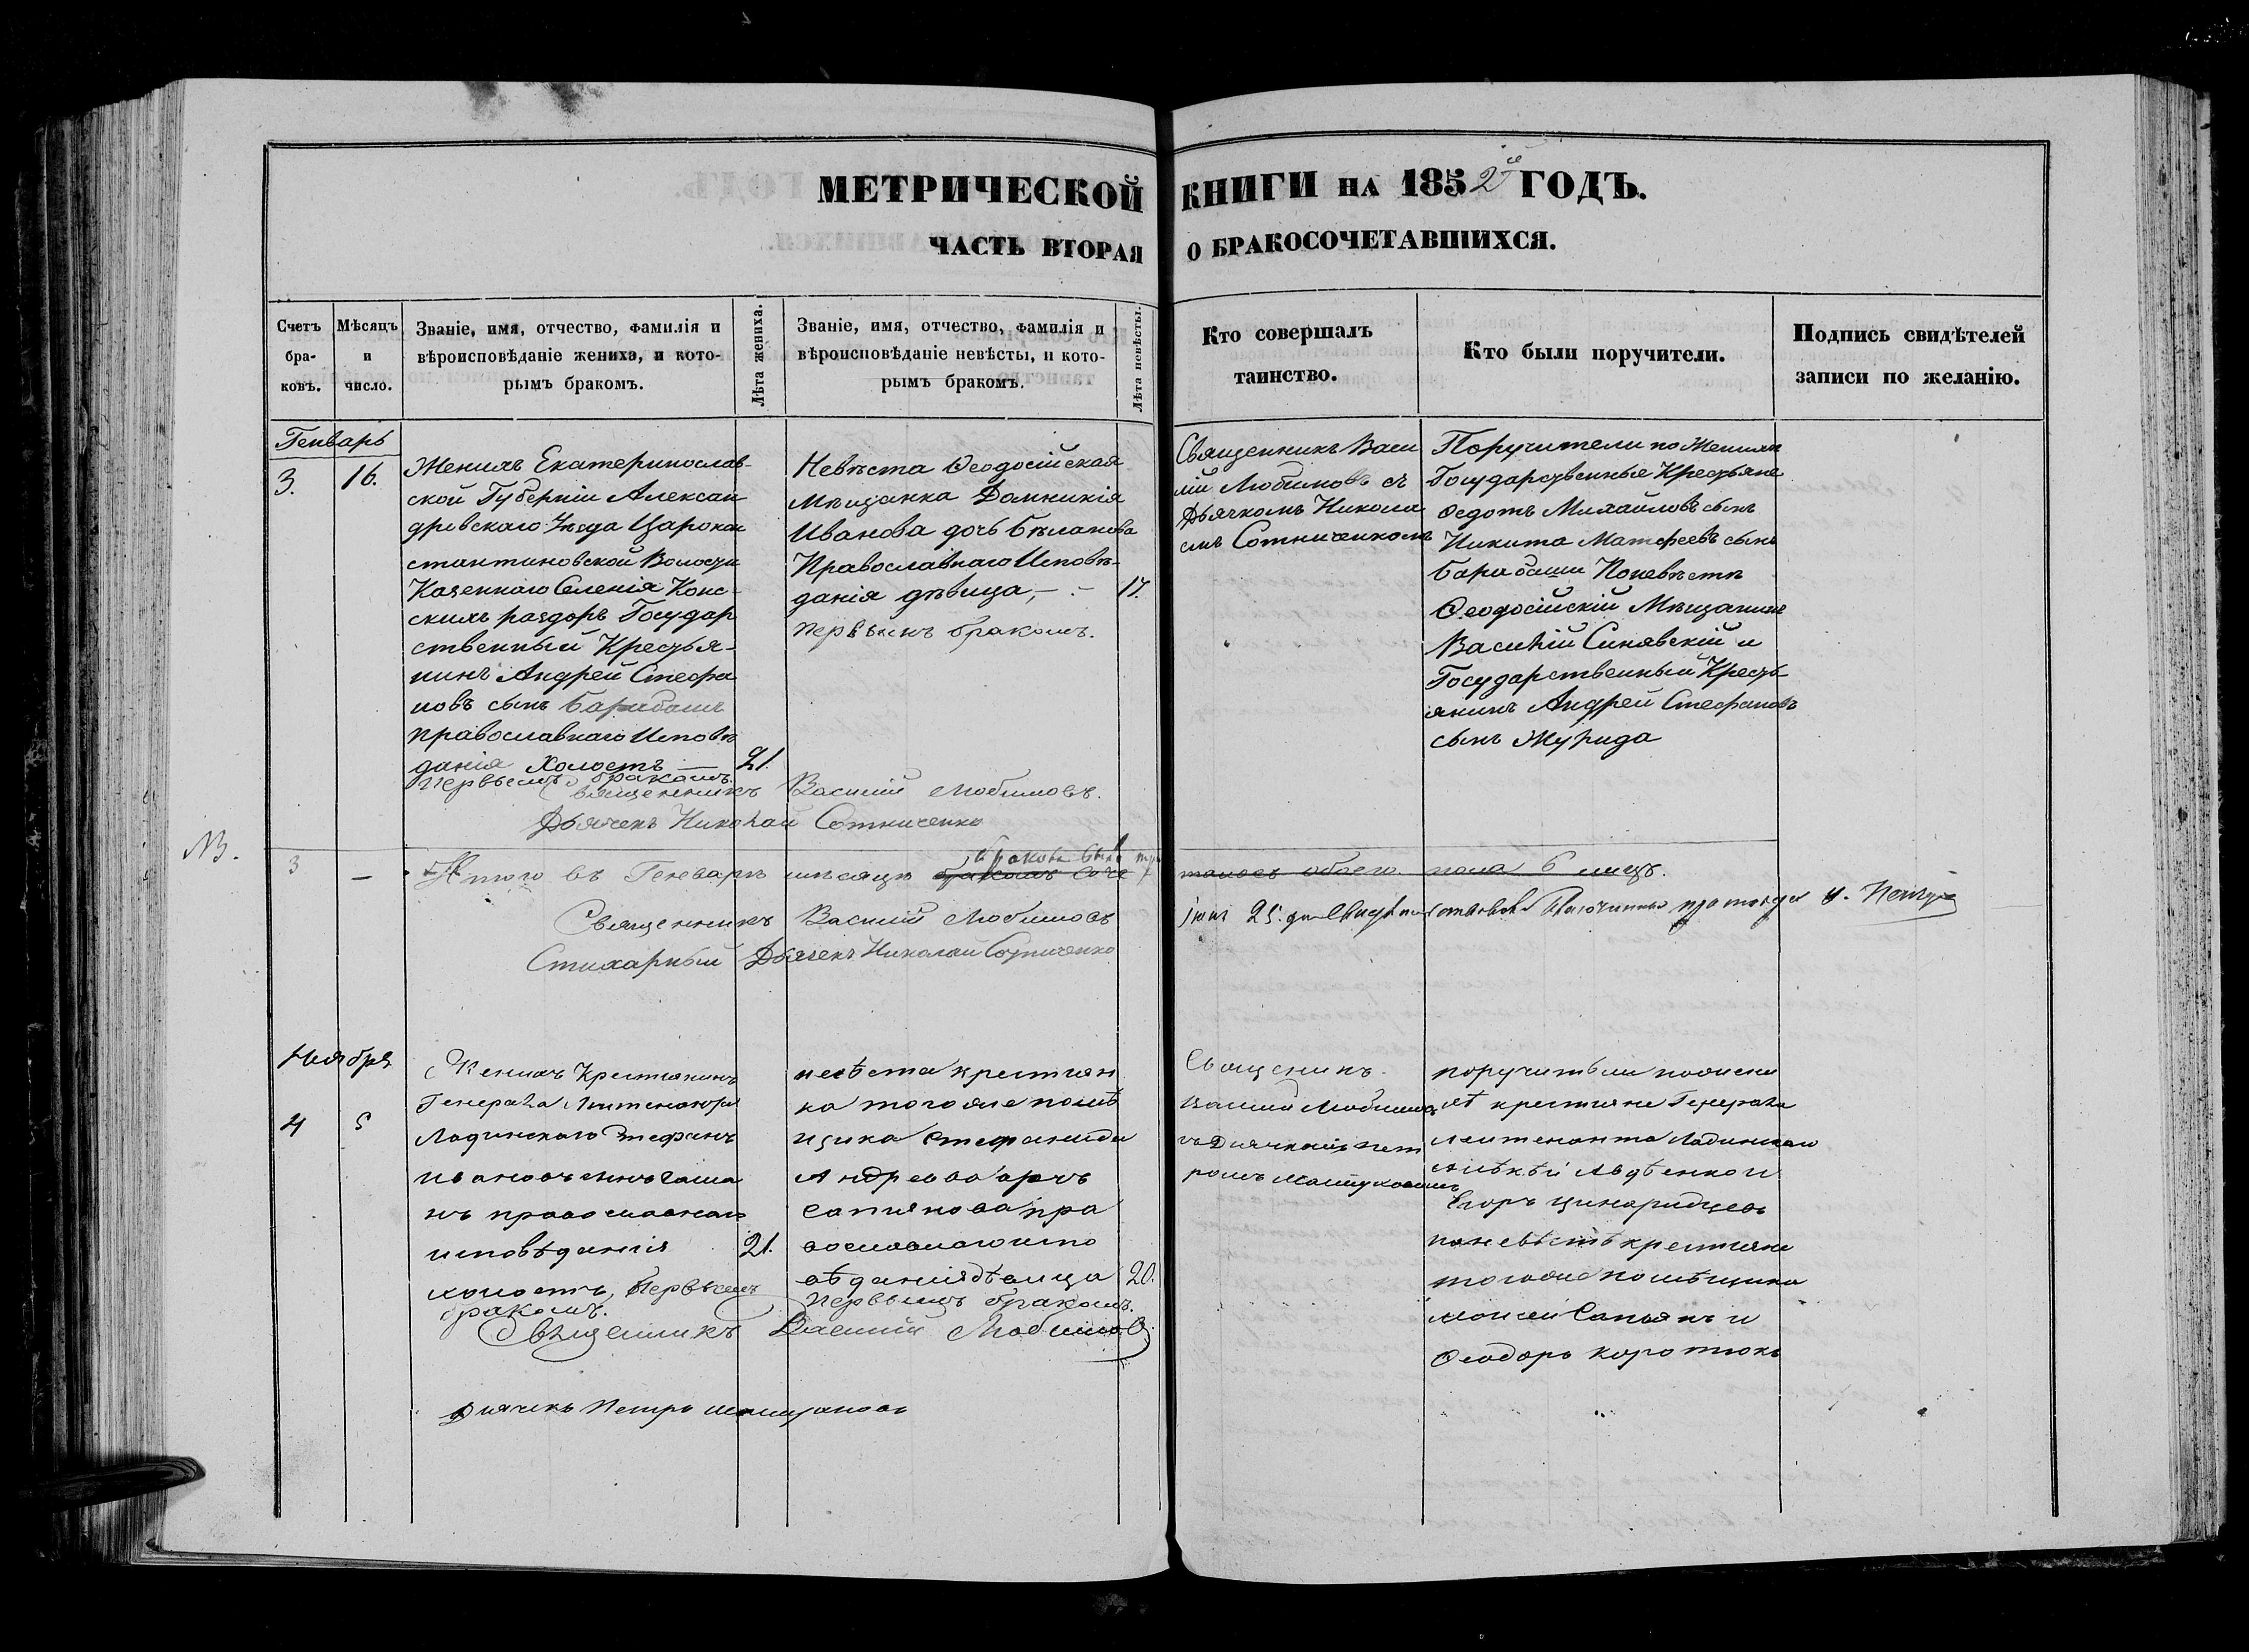 МЕТРИЧЕСКОЙ КНИГИ НА 1852й ГОДЪ.
ЧАСТЬ ВТОРАЯ О БРАКОСОЧЕТАВШИХСЯ.
Счетъ бра-
ковъ.
Мѣсяцъ
и
число.
Званіе, имя, отчество, фамилія и
вѣроисповѣданіе жениха, и кото-
рымъ бракомъ.
Лѣта жениха.
Званіе, имя, отчество, фамилія и
вѣроисповѣданіе невѣсты, и кото-
рымъ бракомъ.
Лѣта невѣсты.
Кто совершалъ
таинство.
Кто были поручители.
Подпись свидѣтелей
записи по желанію.
Генварь
3.
16.
Женихъ Екатеринослав-
ской Губерніи Алексан
дрѣвскаго Уѣзда Царокон
стантиновской Волости
Казеннаго Селенія Конс-
скихъ раздоръ Государ
ственный Крестья-
нинъ Андрей Стефа
новъ сынъ Барабашъ
православнаго Исповѣ
данія Холостъ —
21.
первымъ бракомъ.
Невѣста Ѳеодосійская
Мѣщанка Домникія
Иванова дочь Бѣланова
Православнаго Исповѣ-
данія дѣвица, —
17.
первымъ бракомъ.
Священникъ Васи
лій Любимовъ съ
Дьячкомъ Никола
емъ Сотниченкомъ
Поручители по Женихѣ
Государственные Крестьяне
Ѳедотъ Михайловъ сынъ
Никита Матфеевъ сынъ
Барабаши По невѣстѣ
Ѳеодосійскій Мѣщанинъ
Василій Синявскій и
Государственный Кресть
янинъ Андрей Стефановъ
сынъ Журида
Священникъ Василій Любимовъ.
Дьячекъ Николай Сотниченко
NB.
3
—
браковъ было три
Итого въ Генварѣ мѣсяцѣ бракомъ соче
талось обоего пола 6 лицъ.
Священникъ Василій Любимовъ
Стихарный Дьячекъ Николай Сотниченко
25.
Ноября
4
5
Женихъ Крестянинъ
Генерала Лейтенанта
Ладинскаго Стефанъ
Ивановъ сынъ
православнаго
исповѣданія
21.
холостъ, Первымъ
бракомъ.
невѣста крестян
ка того же помѣ
щика Стефанида
Андреева дочь
Сапянова пра
вославнаго испо
вѣданія дѣвица
20.
Первымъ бракомъ.
Священикъ
Василій Любимовъ
съ Диячкомъ Пет
ромъ
поручители по жених
ѣ крестяне Генерала
Лейтенанта Ладинскаго
Авдѣенко и
Егоръ
по невѣстѣ крестяне
того же помѣщика
Моисей Сапянъ и
Ѳеодоръ Коротюкъ
Священникъ Василій Любимовъ
Диячекъ Петръ